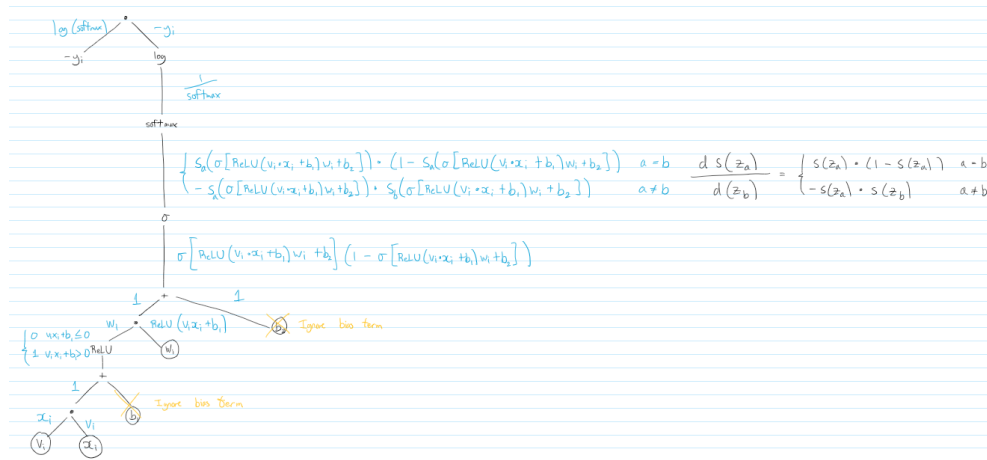 log(softmax) • -yi
-yi log
1
softmax
softmax
{ Sa(σ[ReLU(vi•xi+b1)wi+b2]) • (1 - Sa(σ[ReLU(vi•xi+b1)wi+b2])) a=b d s(za) = { s(za) • (1 - s(za)) a=b
-Sa(σ[ReLU(vi•xi+b1)wi+b2]) • Sb(σ[ReLU(vi•xi+b1)wi+b2]) a≠b d(zb) -s(za) • s(zb) a≠b
σ
σ[ReLU(vi•xi+b1)wi+b2](1 - σ[ReLU(vi•xi+b1)wi+b2])
1 + 1
wi • ReLU(vixi+b1) b2 Ignore bias term
{ 0 vixi+b1≤0
1 vixi+b1>0 ReLU wi
+
1
xi • vi b1 Ignore bias term
vi xi